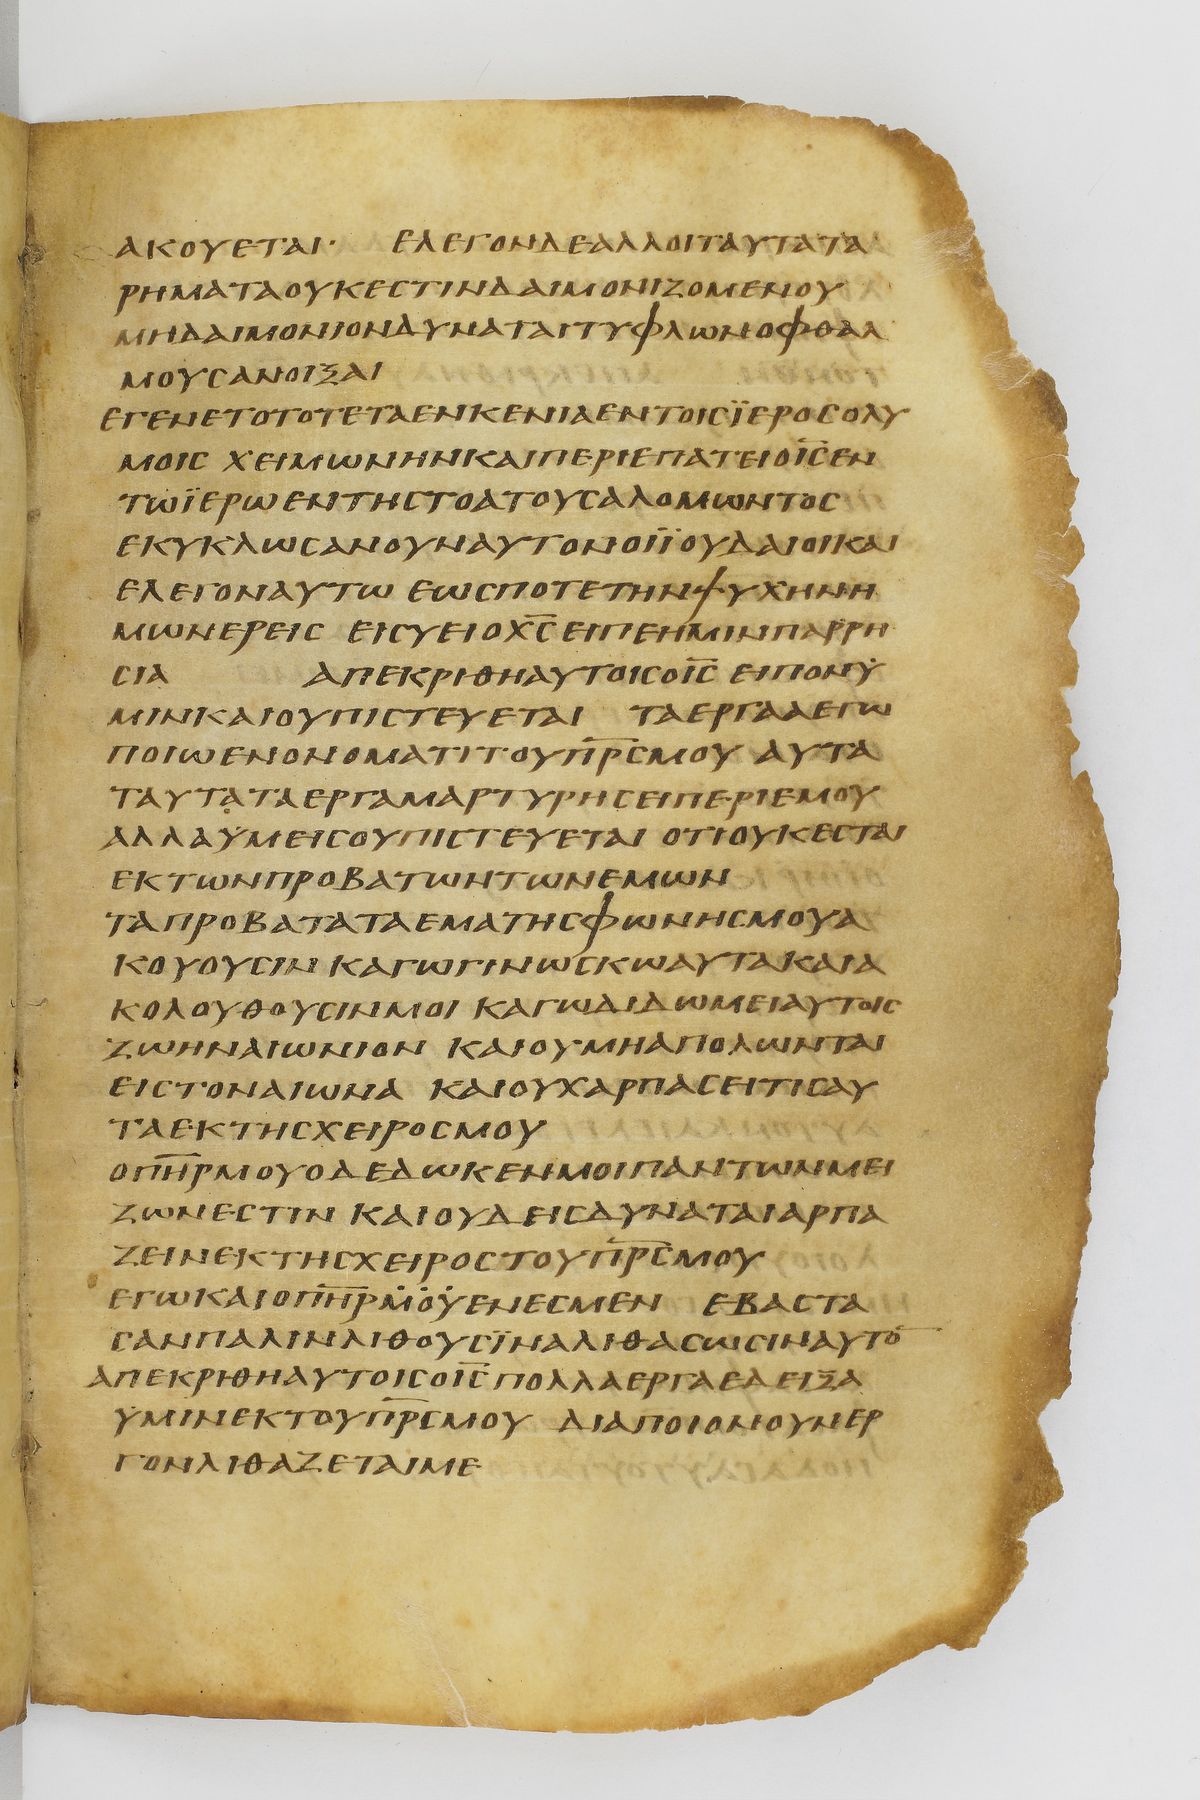 ΑΚΟΥΕΤΑΙ· ΕΛΕΓΟΝΔΕΑΛΛΟΙΤΑΥΤΑΤΑ
ΡΗΜΑΤΑΟΥΚΕΣΤΙΝΔΑΙΜΟΝΙΖΟΜΕΝΟΥ
ΜΗΔΑΙΜΟΝΙΟΝΔΥΝΑΤΑΙΤΥΦΛΩΝΟΦΘΑΛ
ΜΟΥΣΑΝΟΙΞΑΙ
ΕΓΕΝΕΤΟΤΟΤΕΤΑΕΝΚΕΝΙΑΕΝΤΟΙΣΪΕΡΟΣΟΛΥ
ΜΟΙΣ ΧΕΙΜΩΝΗΝΚΑΙΠΕΡΙΕΠΑΤΕΙΟΙ̅Σ̅ΕΝ
ΤΩΪΕΡΩΕΝΤΗΣΤΟΑΤΟΥΣΑΛΟΜΩΝΤΟΣ
ΕΚΥΚΛΩΣΑΝΟΥΝΑΥΤΟΝΟΙΪΟΥΔΑΙΟΙΚΑΙ
ΕΛΕΓΟΝΑΥΤΩ ΕΩΣΠΟΤΕΤΗΝΨΥΧΗΝΗ
ΜΩΝΕΡΕΙΣ ΕΙΣΥΕΙΟΧ̅Σ̅ΕΙΠΕΗΜΙΝΠΑΡΡΗ
ΣΙΑ ΑΠΕΚΡΙΘΗΑΥΤΟΙΣΟΙ̅Σ̅ ΕΙΠΟΝΫ
ΜΙΝΚΑΙΟΥΠΙΣΤΕΥΕΤΑΙ ΤΑΕΡΓΑΑΕΓΩ
ΠΟΙΩΕΝΟΝΟΜΑΤΙΤΟΥΠ̅Ρ̅Σ̅ΜΟΥ ΑΥΤΑ
ΤΑΥΤΑΤΑΕΡΓΑΜΑΡΤΥΡΗΣΕΙΠΕΡΙΕΜΟΥ
ΑΛΛΑΫΜΕΙΣΟΥΠΙΣΤΕΥΕΤΑΙ ΟΤΙΟΥΚΕΣΤΑΙ
ΕΚΤΩΝΠΡΟΒΑΤΩΝΤΩΝΕΜΩΝ
ΤΑΠΡΟΒΑΤΑΤΑΕΜΑΤΗΣΦΩΝΗΣΜΟΥΑ
ΚΟΥΟΥΣΙΝ ΚΑΓΩΓΙΝΩΣΚΩΑΥΤΑΚΑΙΑ
ΚΟΛΟΥΘΟΥΣΙΝΜΟΙ ΚΑΓΩΔΙΔΩΜΕΙΑΥΤΟΙΣ
ΖΩΗΝΑΙΩΝΙΟΝ ΚΑΙΟΥΜΗΑΠΟΛΩΝΤΑΙ
ΕΙΣΤΟΝΑΙΩΝΑ ΚΑΙΟΥΧΑΡΠΑΣΕΙΤΙΣΑΥ
ΤΑΕΚΤΗΣΧΕΙΡΟΣΜΟΥ
ΟΠ̅Η̅Ρ̅ΜΟΥΟΔΕΔΩΚΕΝΜΟΙΠΑΝΤΩΝΜΕΙ
ΖΩΝΕΣΤΙΝ ΚΑΙΟΥΔΕΙΣΔΥΝΑΤΑΙΑΡΠΑ
ΖΕΙΝΕΚΤΗΣΧΕΙΡΟΣΤΟΥΠ̅Ρ̅Σ̅ΜΟΥ
ΕΓΩΚΑΙΟΠ̅Η̅Ρ̅Μ̇Ο̇Υ̇ΕΝΕΣΜΕΝ ΕΒΑΣΤΑ
ΣΑΝΠΑΛΙΝΛΙΘΟΥΣΪΝΑΛΙΘΑΣΩΣΙΝΑΥΤΟ̅
ΑΠΕΚΡΙΘΗΑΥΤΟΙΣΟΙ̅Σ̅ΠΟΛΛΑΕΡΓΑΕΔΕΙΞΑ
ΫΜΙΝΕΚΤΟΥΠ̅Ρ̅Σ̅ΜΟΥ ΔΙΑΠΟΙΟΝΟΥΝΕΡ
ΓΟΝΛΙΘΑΖΕΤΑΙΜΕ